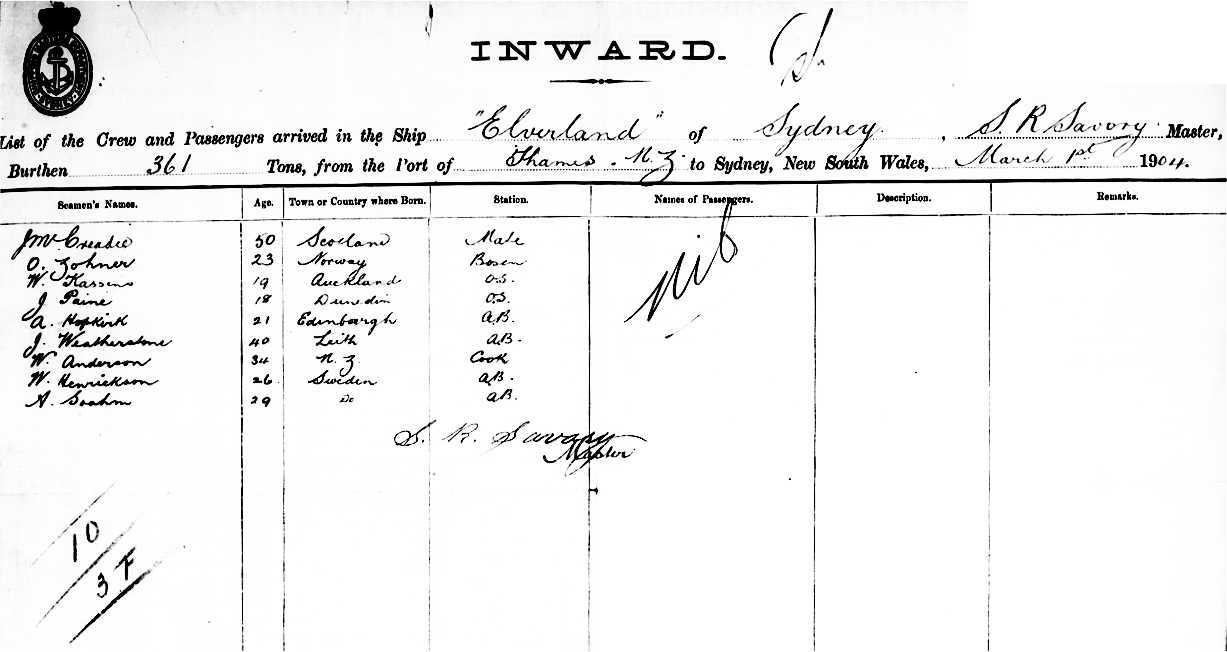 INWARD.
List of the Crew and Passengers arrived in the Ship "Elverland" of Sydney, S. R Savory Master,
Burthen 361 Tons, from the Port of Thames. N.Z to Sydney, New South Wales, March 1st 1904.
Seamen's Names. Age. Town or Country where Born. Station. Names of Passengers. Description. Remarks.
J Mc Creadie 50 Scotland Mate nil
O. Zohner 23 Norway Bosen
W. Kassens 19 Auckland O.S.
J Paine 18 Dunedin O.S.
A. Hopkirk 21 Edinburgh A.B.
J. Weatherstone 40 Leith A.B.
W. Anderson 34 N.Z. Cook
W. Henrickson 26 Sweden A.B.
A. 29 Do A.B.
S. R. Savory
Master
10
3 F